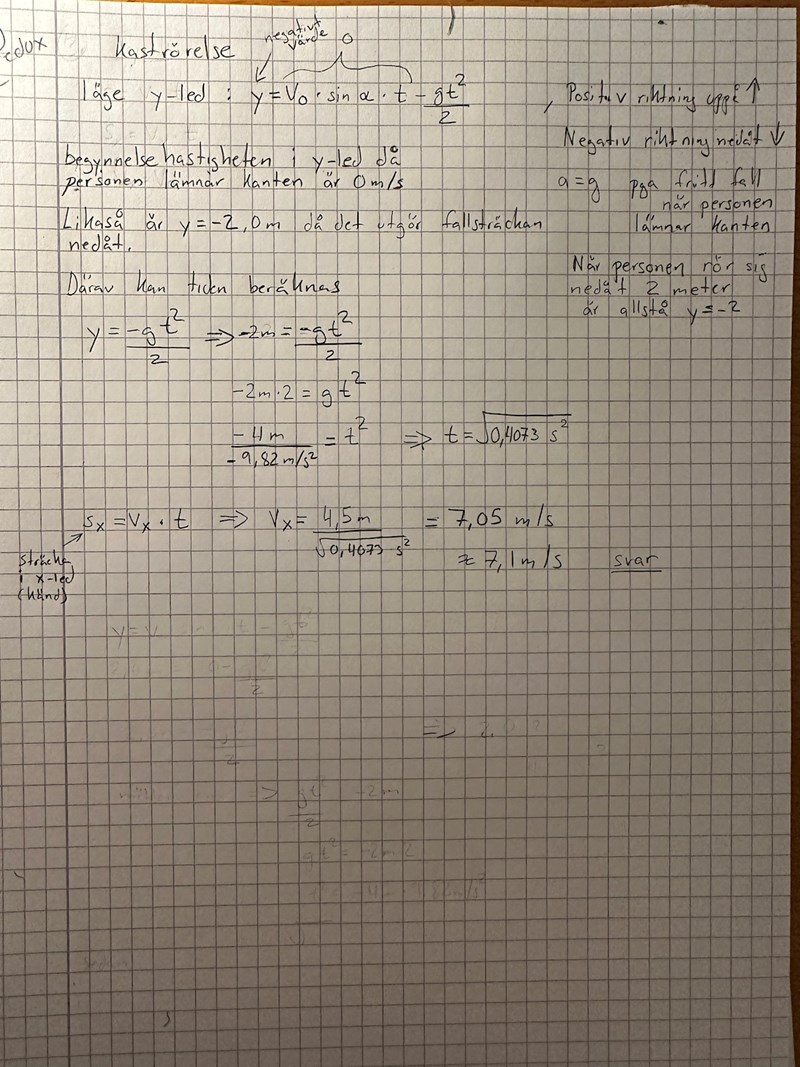 kaströrelse
negativt
värde
0
läge y-led : y = V₀ · sin α · t - gt²/2
, Positiv riktning uppå ↑
Negativ riktning nedåt ↓
begynnelsehastigheten i y-led då
personen lämnar kanten är 0 m/s
a = g pga fritt fall
när personen
lämnar kanten
Likaså är y = -2,0m då det utgör fallsträckan
nedåt.
När personen rör sig
nedåt 2 meter
är alltså y = -2
Därav kan tiden beräknas
y = -gt²/2 => -2m = -gt²/2
-2m·2 = gt²
-4m/-9,82m/s² = t² => t = √0,4073 s²
sx = vx · t => vx = 4,5m/√0,4073 s² = 7,05 m/s
≈ 7,1m/s svar
sträcka
i x-led
(känd)